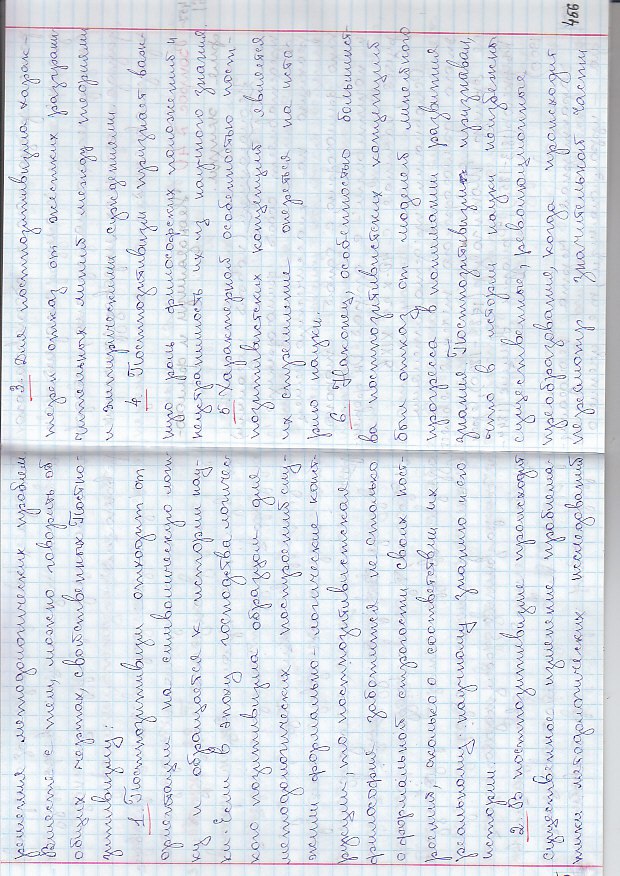 решения методологических проблем
Вместе с тем, можно говорить об
общих чертах, свойственных Постпо-
зитивизму:
1. Постпозитивизм отходит от
ориентации на символическую логи-
ку и обращается к истории нау-
ки. Если в эпоху господства логичес-
кого позитивизма образцом для
методологических построений слу-
жили формально-логические конст-
рукции, то постпозитивистская
философия заботится не столько
о формальной строгости своих пост-
роений, сколько о соответствии их
реальному научному знанию и его
истории.
2. В постпозитивизме происходит
существенное изменение проблема-
тики методологических исследований
3. Для постпозитивизма харак-
терен отказ от жестких разграни-
чительных линий между теориями
и эмпирическими суждениями.
4. Постпозитивизм признает важ-
ную роль философских положений и
неустранимость их из научного знания.
5. Характерной особенностью пост-
позитивистских концепций является
их стремление опереться на исто-
рию науки.
6. Наконец, особенностью большинст-
ва постпозитивистских концепций
был отказ от модели линейного
прогресса в понимании развития
знания. Постпозитивизм признавал,
что в истории науки неизбежны
существенные, революционные
преобразования, когда происходит
пересмотр значительной части
466